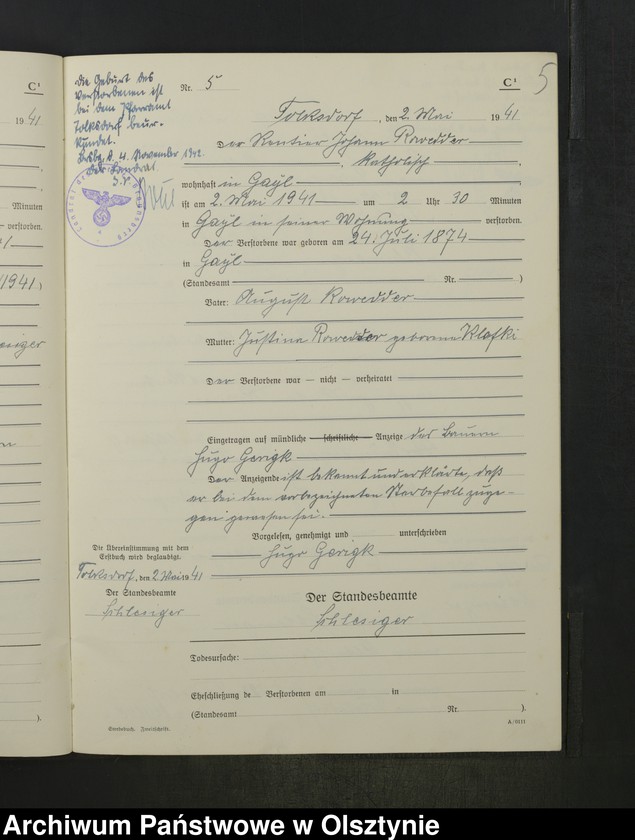 C¹
19 41
Minuten
verstorben.
1941)
).
Die Geburt des
Verstorbenen ist
bei dem Pfarramt
Tolksdorf beur-
kundet.
Brsbg. d. 4. November 1942.
Der Landrat
Nr. 5
C¹
5
Tolksdorf, den 2. Mai 19 41
Der Rentier Johann Rowedder
katholisch
wohnhaft in Gayl
ist am 2. Mai 1941 um 2 Uhr 30 Minuten
in Gayl in seiner Wohnung verstorben.
Der Verstorbene war geboren am 24. Juli 1874
in Gayl
(Standesamt Nr. )
Vater: August Rowedder
Mutter: Justina Rowedder geborene Klafki
Der Verstorbene war — nicht — verheiratet
Eingetragen auf mündliche — schriftliche — Anzeige des Bauern
Hugo Gerigk
Der Anzeigende ist bekannt und erklärte, daß
er bei dem vorbezeichneten Sterbefall zuge-
gen gewesen sei.
Vorgelesen, genehmigt und unterschrieben
Hugo Gerigk
Die Übereinstimmung mit dem
Erstbuch wird beglaubigt.
Tolksdorf, den 2. Mai 19 41
Der Standesbeamte
Schlesiger
Der Standesbeamte
Schlesiger
Todesursache:
Eheschließung de Verstorbenen am in
(Standesamt Nr. ).
Sterbebuch. Zweitschrift.
A/0111
Archiwum Państwowe w Olsztynie